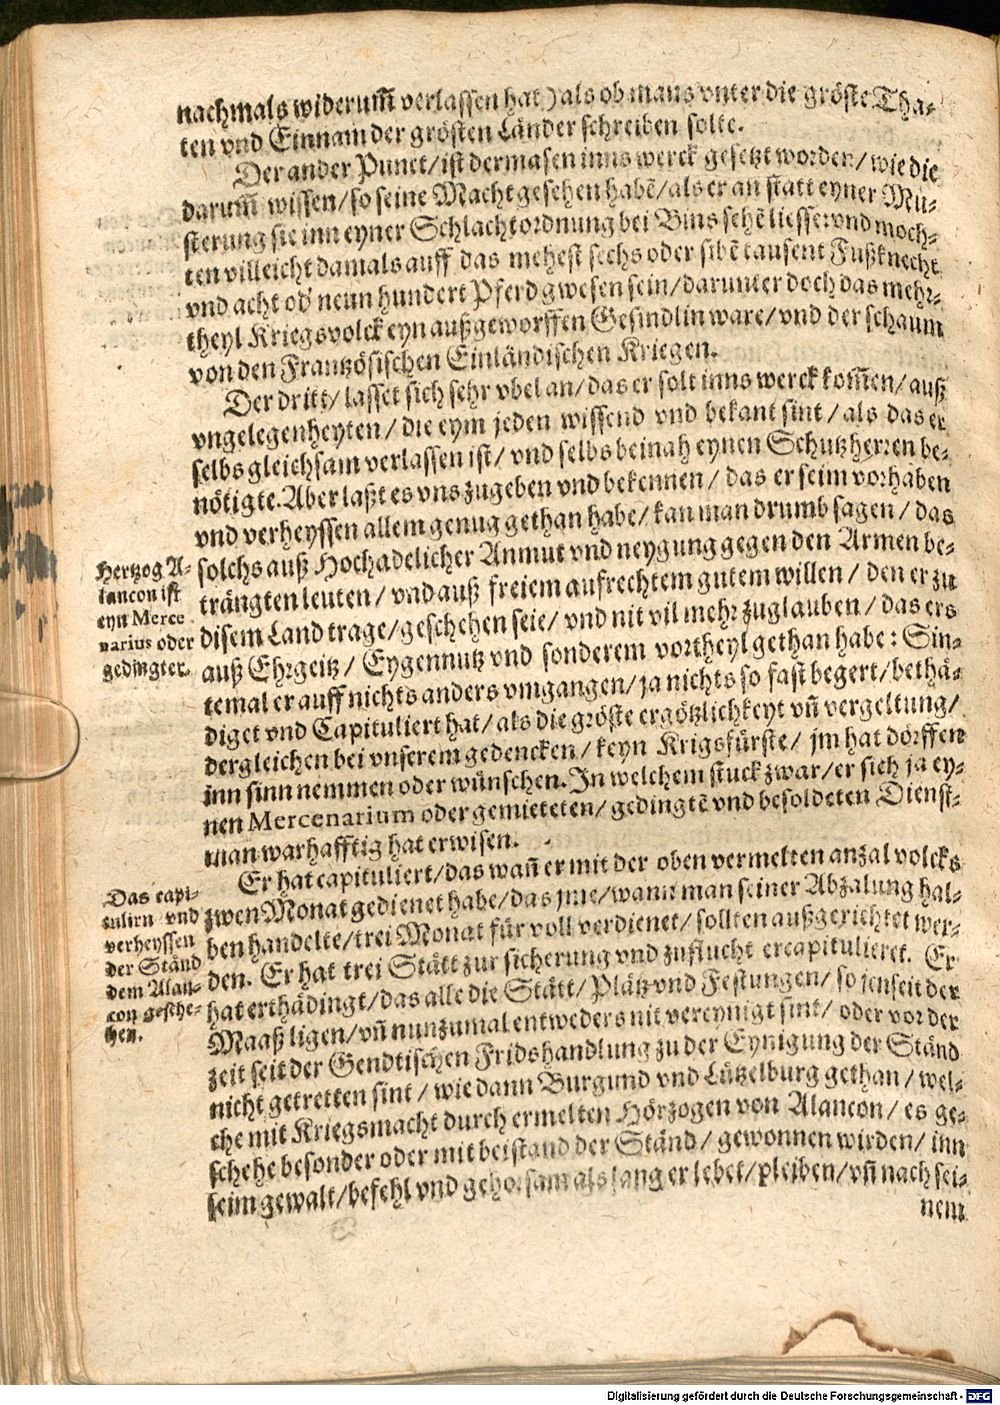 nachmals widerum̃ verlassen hat) als ob mans vnter die gröste Tha-
ten vnd Einnam der grösten Länder schreiben solte.
Der ander Punct/ ist dermasen inns werck gesetzt worden/ wie die
darum̃ wissen/ so seine Macht gesehen habẽ/ als er an statt eyner Mu-
sterung sie inn eyner Schlachtordnung bei Bins sehẽ liesse: vnd moch-
ten villeicht damals auff das mehest sechs oder sibẽ tausent Fußknecht
vnd acht od' neun hundert Pferd gwesen sein/ darunter doch das mehr-
theyl Kriegsvolck eyn außgeworffen Gesindlin ware/ vnd der schaum
von den Frantzösischen Einländischen Kriegen.
Der dritt/ lasset sich sehr vbel an/ das er solt inns werck kom̃en/ auß
vngelegenheyten/ die eym jeden wissend vnd bekant sint/ als das er
selbs gleichsam verlassen ist/ vnd selbs beinah eynen Schutzherren be-
nötigte. Aber laßt es vns zugeben vnd bekennen/ das er seim vorhaben
vnd verheyssen allem genug gethan habe/ kan man drumb sagen/ das
solchs auß Hochadelicher Anmut vnd neygung gegen den Armen be-
trängten leuten/ vnd auß freiem aufrechtem gutem willen/ den er zu
disem Land trage/ geschehen seie/ vnd nit vil mehr zuglauben/ das ers
auß Ehrgeitz/ Eygennutz vnd sonderem vortheyl gethan habe: Sin-
temal er auff nichts anders vmgangen/ ja nichts so fast begert/ bethä-
diget vnd Capituliert hat/ als die gröste ergötzlichkeyt vñ vergeltung/
dergleichen bei vnserem gedencken/ keyn Krigsfürste/ jm hat dörffen
inn sinn nemmen oder wünschen. In welchem stuck zwar/ er sich ja ey-
nen Mercenarium oder gemieteten/ gedingtẽ vnd besoldeten Dienst-
man warhafftig hat erwisen.
Hertzog A-
lancon ist
eyn Merce
narius oder
gedingter.
Er hat capituliert/ das wañ er mit der oben vermelten anzal volcks
zwen Monat gedienet habe/ das jme/ wann man seiner Abzalung hal-
ben handelte/ trei Monat für voll verdienet/ sollten außgerichtet wer-
den. Er hat trei Stätt zur sicherung vnd zuflucht ercapitulieret. Er
hat erthädingt/ das alle die Stätt/ Plätz vnd Festungen/ so jenseit der
Maaß ligen/ vñ nunzumal entweders nit vereynigt sint/ oder vor der
zeit seit der Gendtischen Fridshandlung zu der Eynigung der Ständ
nicht getretten sint/ wie dann Burgund vnd Lützelburg gethan/ wel-
che mit Kriegsmacht durch ermelten Hörzogen von Alancon/ es ge-
schehe besonder oder mit beistand der Ständ/ gewonnen wirden/ inn
seim gewalt/ befehl vnd gehorsam als lang er lebet/ pleiben/ vñ nach sei-
nem
Das capi-
tulirn vnd
verheyssen
der Ständ
dem Alan-
con gesche-
hen.
Digitalisierung gefördert durch die Deutsche Forschungsgemeinschaft - DFG